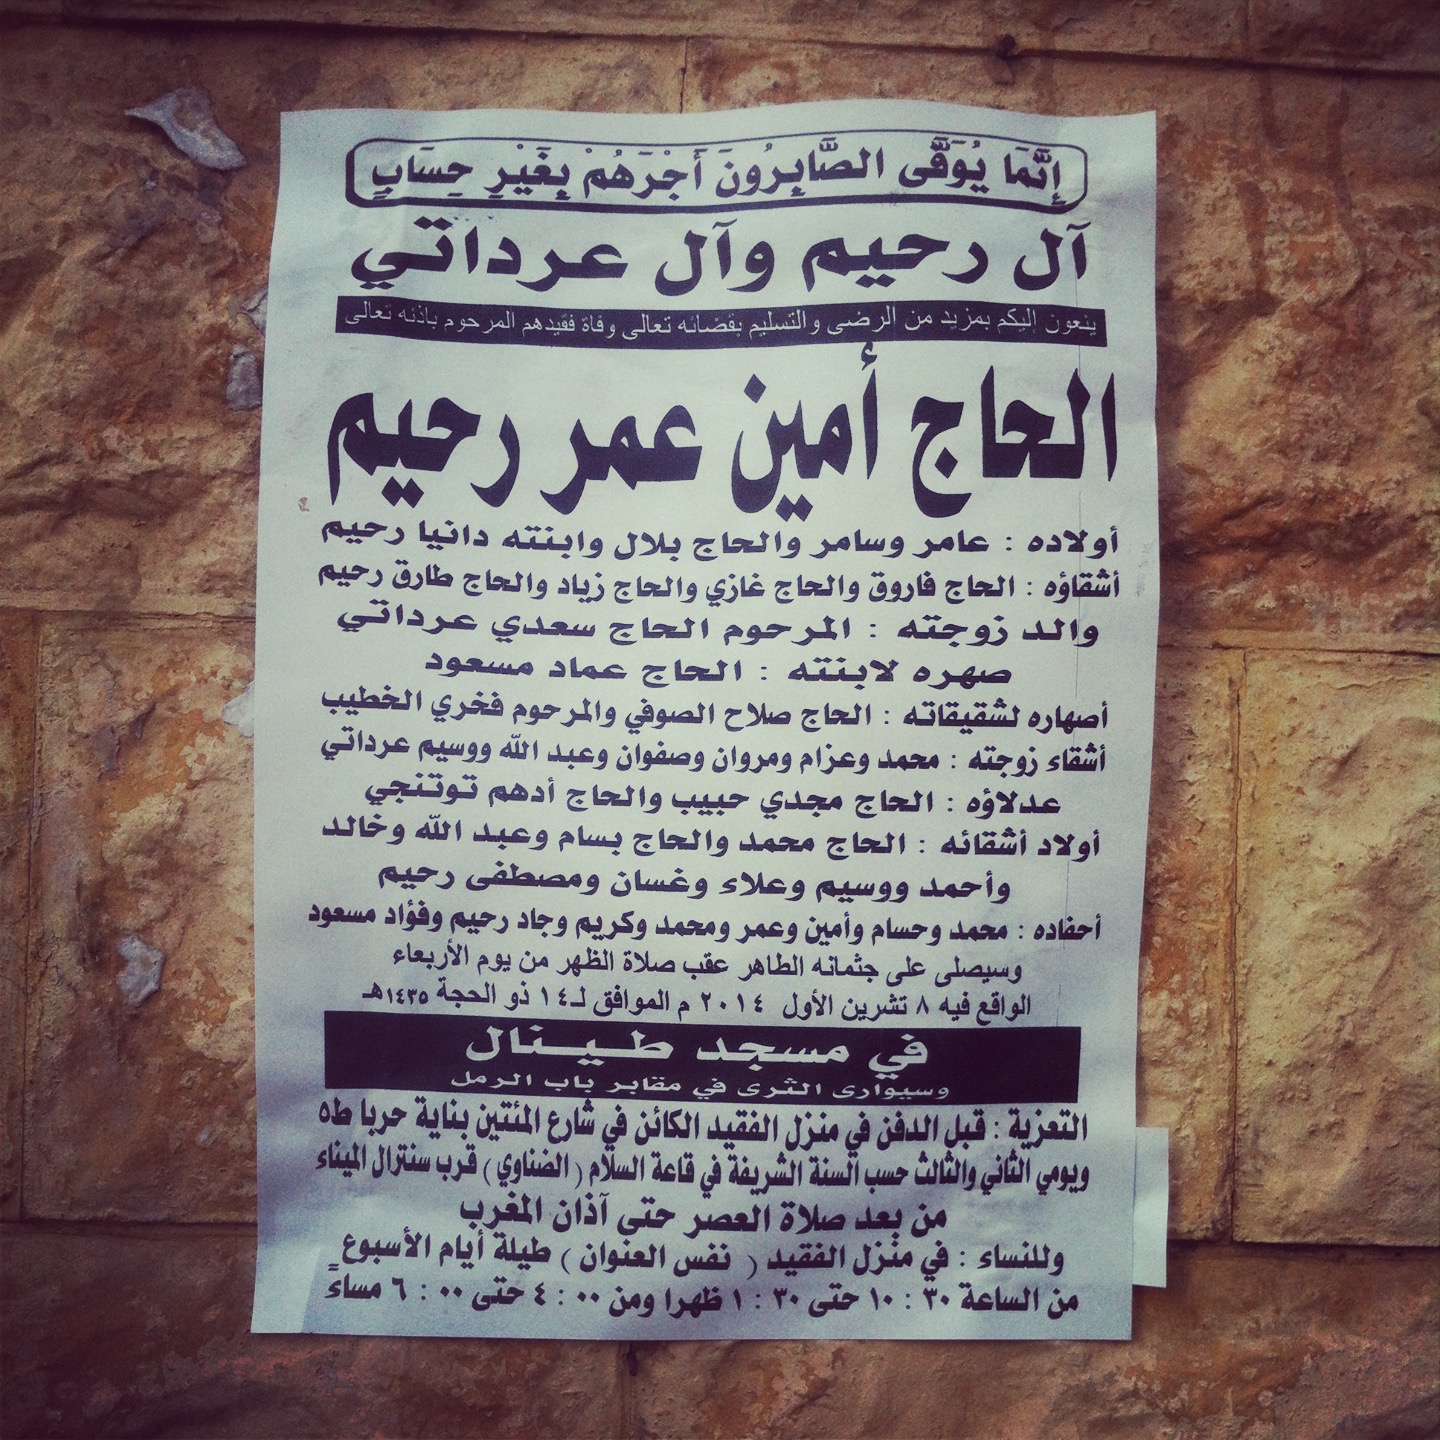 إِنَّمَا يُوَفَّى الصَّابِرُونَ أَجْرَهُمْ بِغَيْرِ حِسَابٍ
آل رحيم وآل عرداتي
ينعون إليكم بمزيد من الرضى والتسليم بقضائه تعالى وفاة فقيدهم المرحوم باذنه تعالى
الحاج أمين عمر رحيم
أولاده : عامر وسامر والحاج بلال وابنته دانيا رحيم
أشقاؤه : الحاج فاروق والحاج غازي والحاج زياد والحاج طارق رحيم
والد زوجته : المرحوم الحاج سعدي عرداتي
صهره لابنته : الحاج عماد مسعود
أصهاره لشقيقاته : الحاج صلاح الصوفي والمرحوم فخري الخطيب
أشقاء زوجته : محمد وعزام ومروان وصفوان وعبد الله ووسيم عرداتي
عدلاؤه : الحاج مجدي حبيب والحاج أدهم توتنجي
أولاد أشقائه : الحاج محمد والحاج بسام وعبد الله وخالد
وأحمد ووسيم وعلاء وغسان ومصطفى رحيم
أحفاده : محمد وحسام وأمين وعمر ومحمد وكريم وجاد رحيم وفؤاد مسعود
وسيصلى على جثمانه الطاهر عقب صلاة الظهر من يوم الأربعاء
الواقع فيه ٨ تشرين الأول ٢٠١٤ م الموافق لـ ١٤ ذو الحجة ١٤٣٥هـ
في مسجد طينال
وسيوارى الثرى في مقابر باب الرمل
التعزية : قبل الدفن في منزل الفقيد الكائن في شارع المئتين بناية حربا ط٥
ويومي الثاني والثالث حسب السنة الشريفة في قاعة السلام ( الضناوي ) قرب سنترال الميناء
من بعد صلاة العصر حتى آذان المغرب
وللنساء : في منزل الفقيد ( نفس العنوان ) طيلة أيام الأسبوع
من الساعة ٣٠ : ١٠ حتى ٣٠ : ١ ظهرا ومن ٠٠ : ٤ حتى ٠٠ : ٦ مساءً